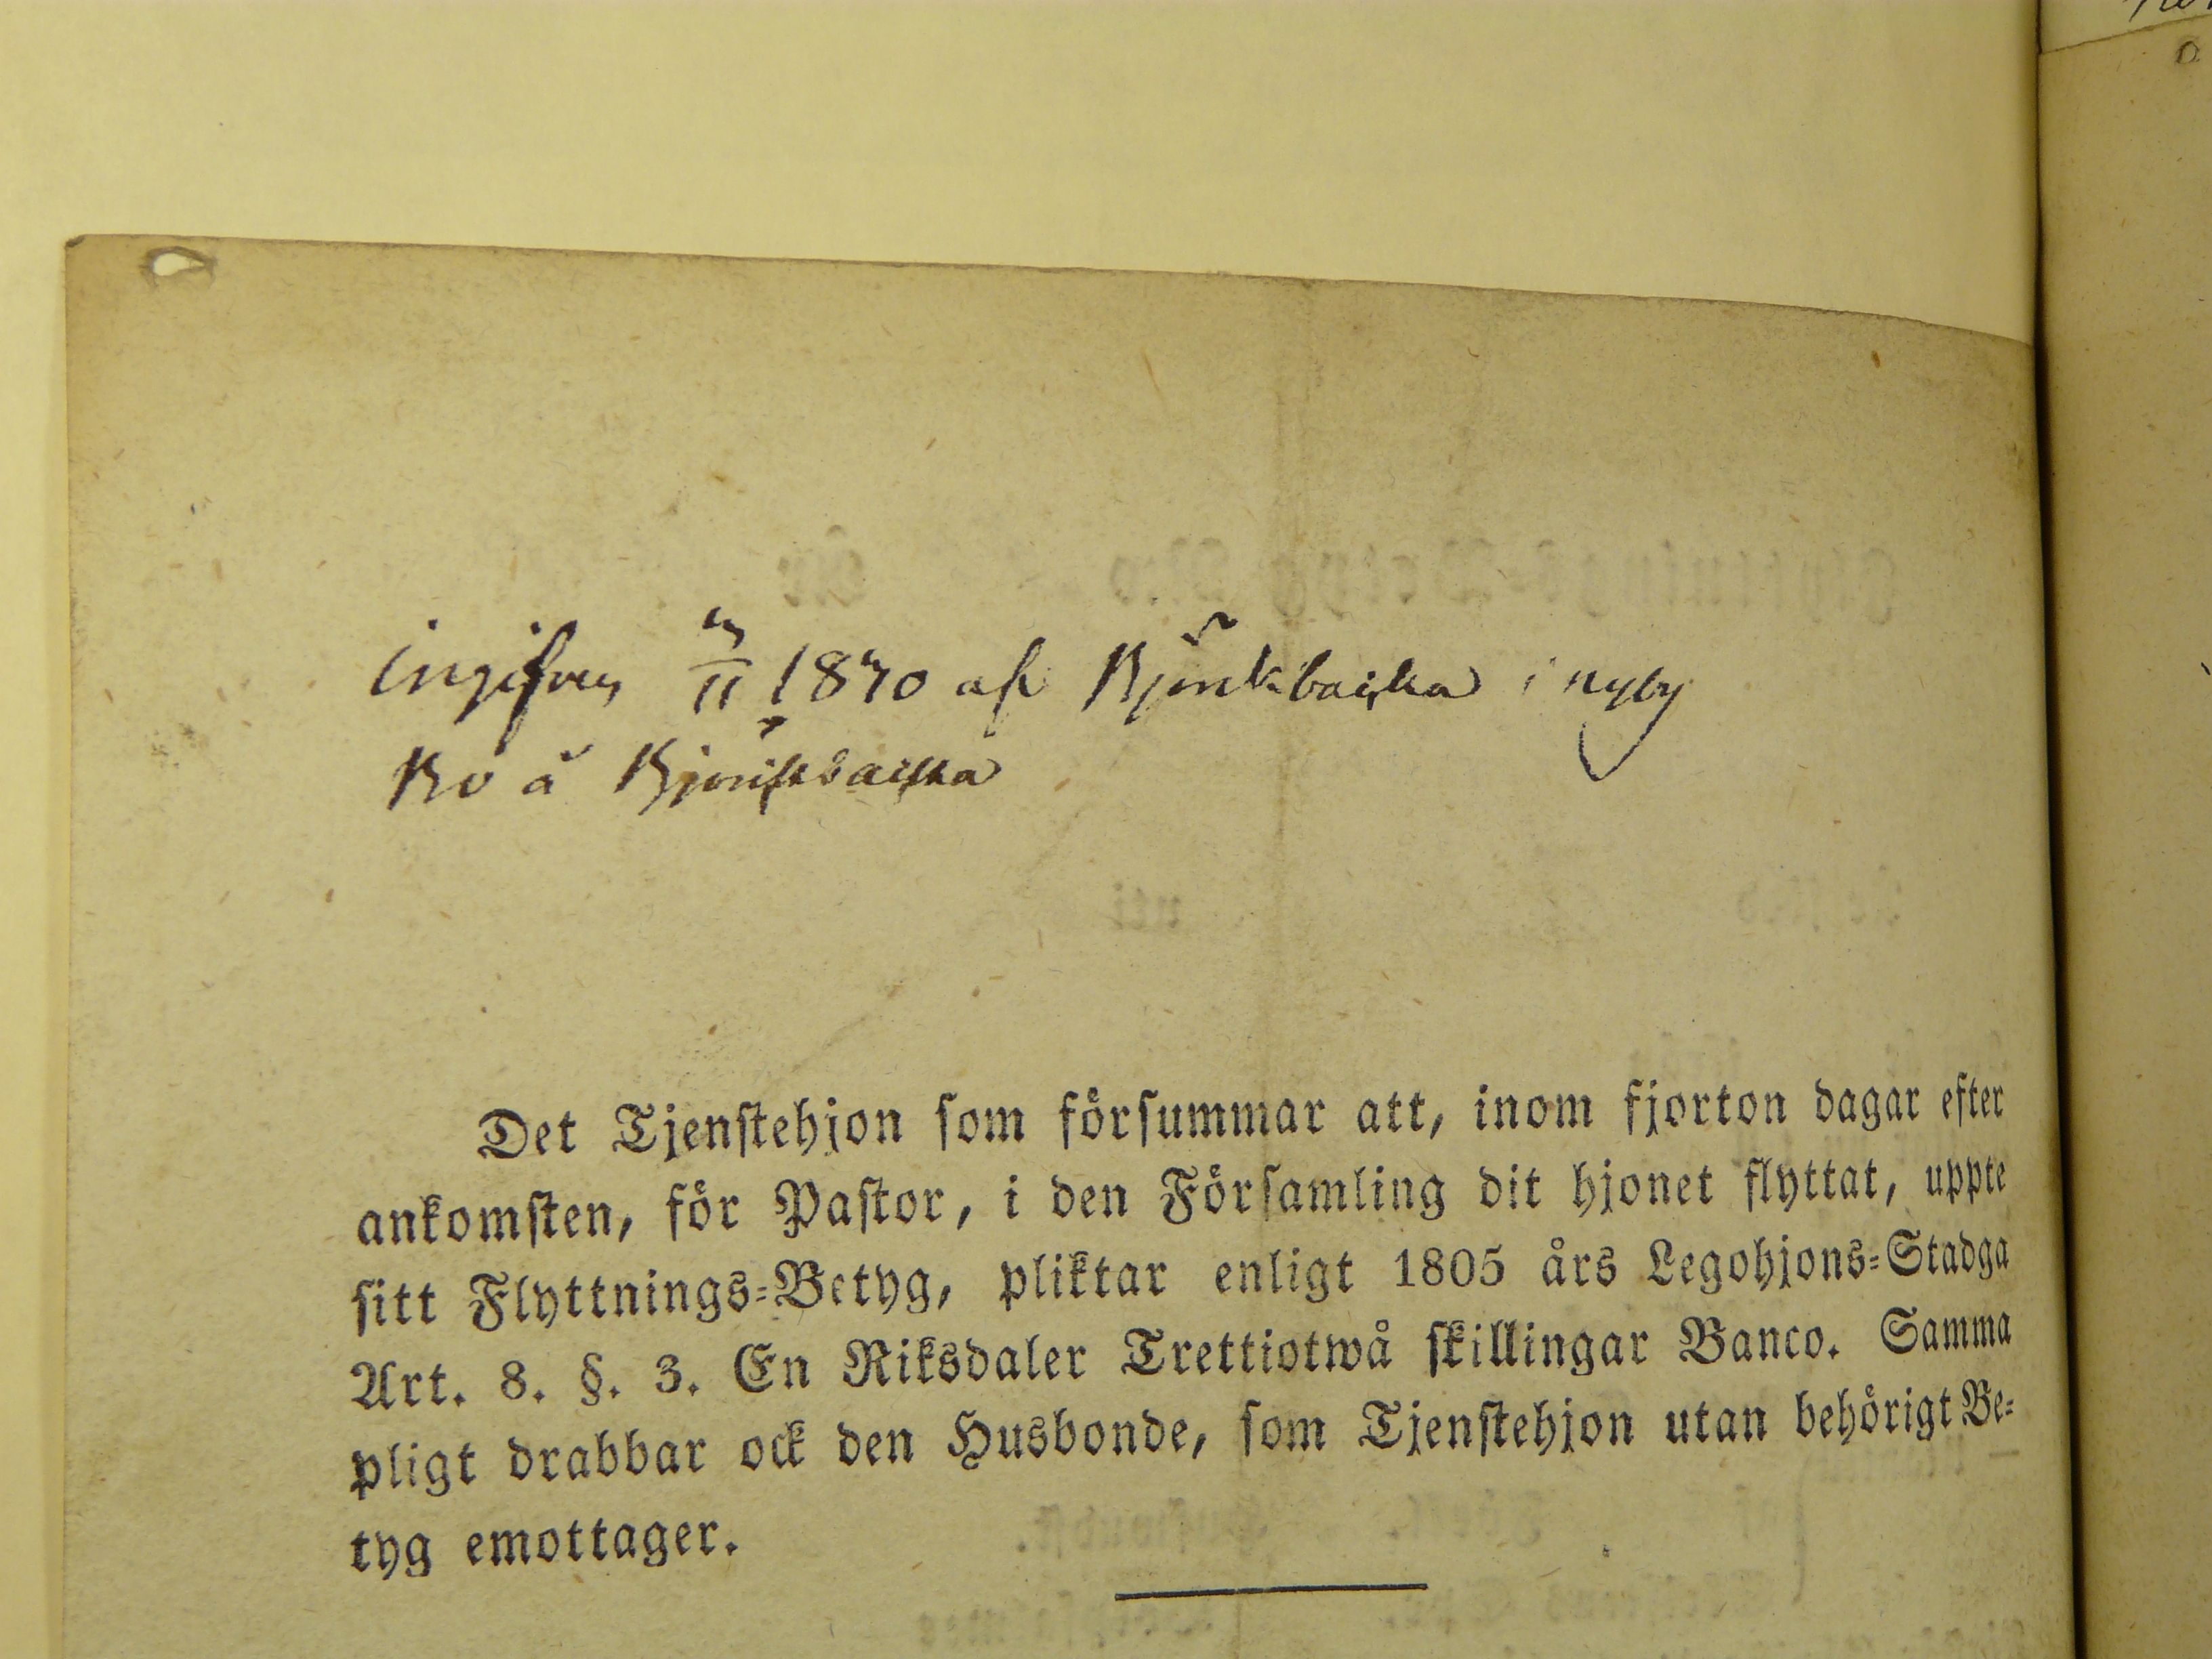 ingifven 3/11 1840 af Björkbacka i nyby
Bo å Björkbacka
Det Tjenstehjon som försummar att, inom fjorton dagar efter
ankomsten, för Pastor, i den Församling dit hjonet flyttat, uppte
sitt Flyttnings-Betyg, pliktar enligt 1805 års Legohjons-Stadga
Art. 8. §. 3. En Riksdaler Trettiotwå skillingar Banco. Samma
pligt drabbar ock den Husbonde, som Tjenstehjon utan behörigt Be-
tyg emottager.